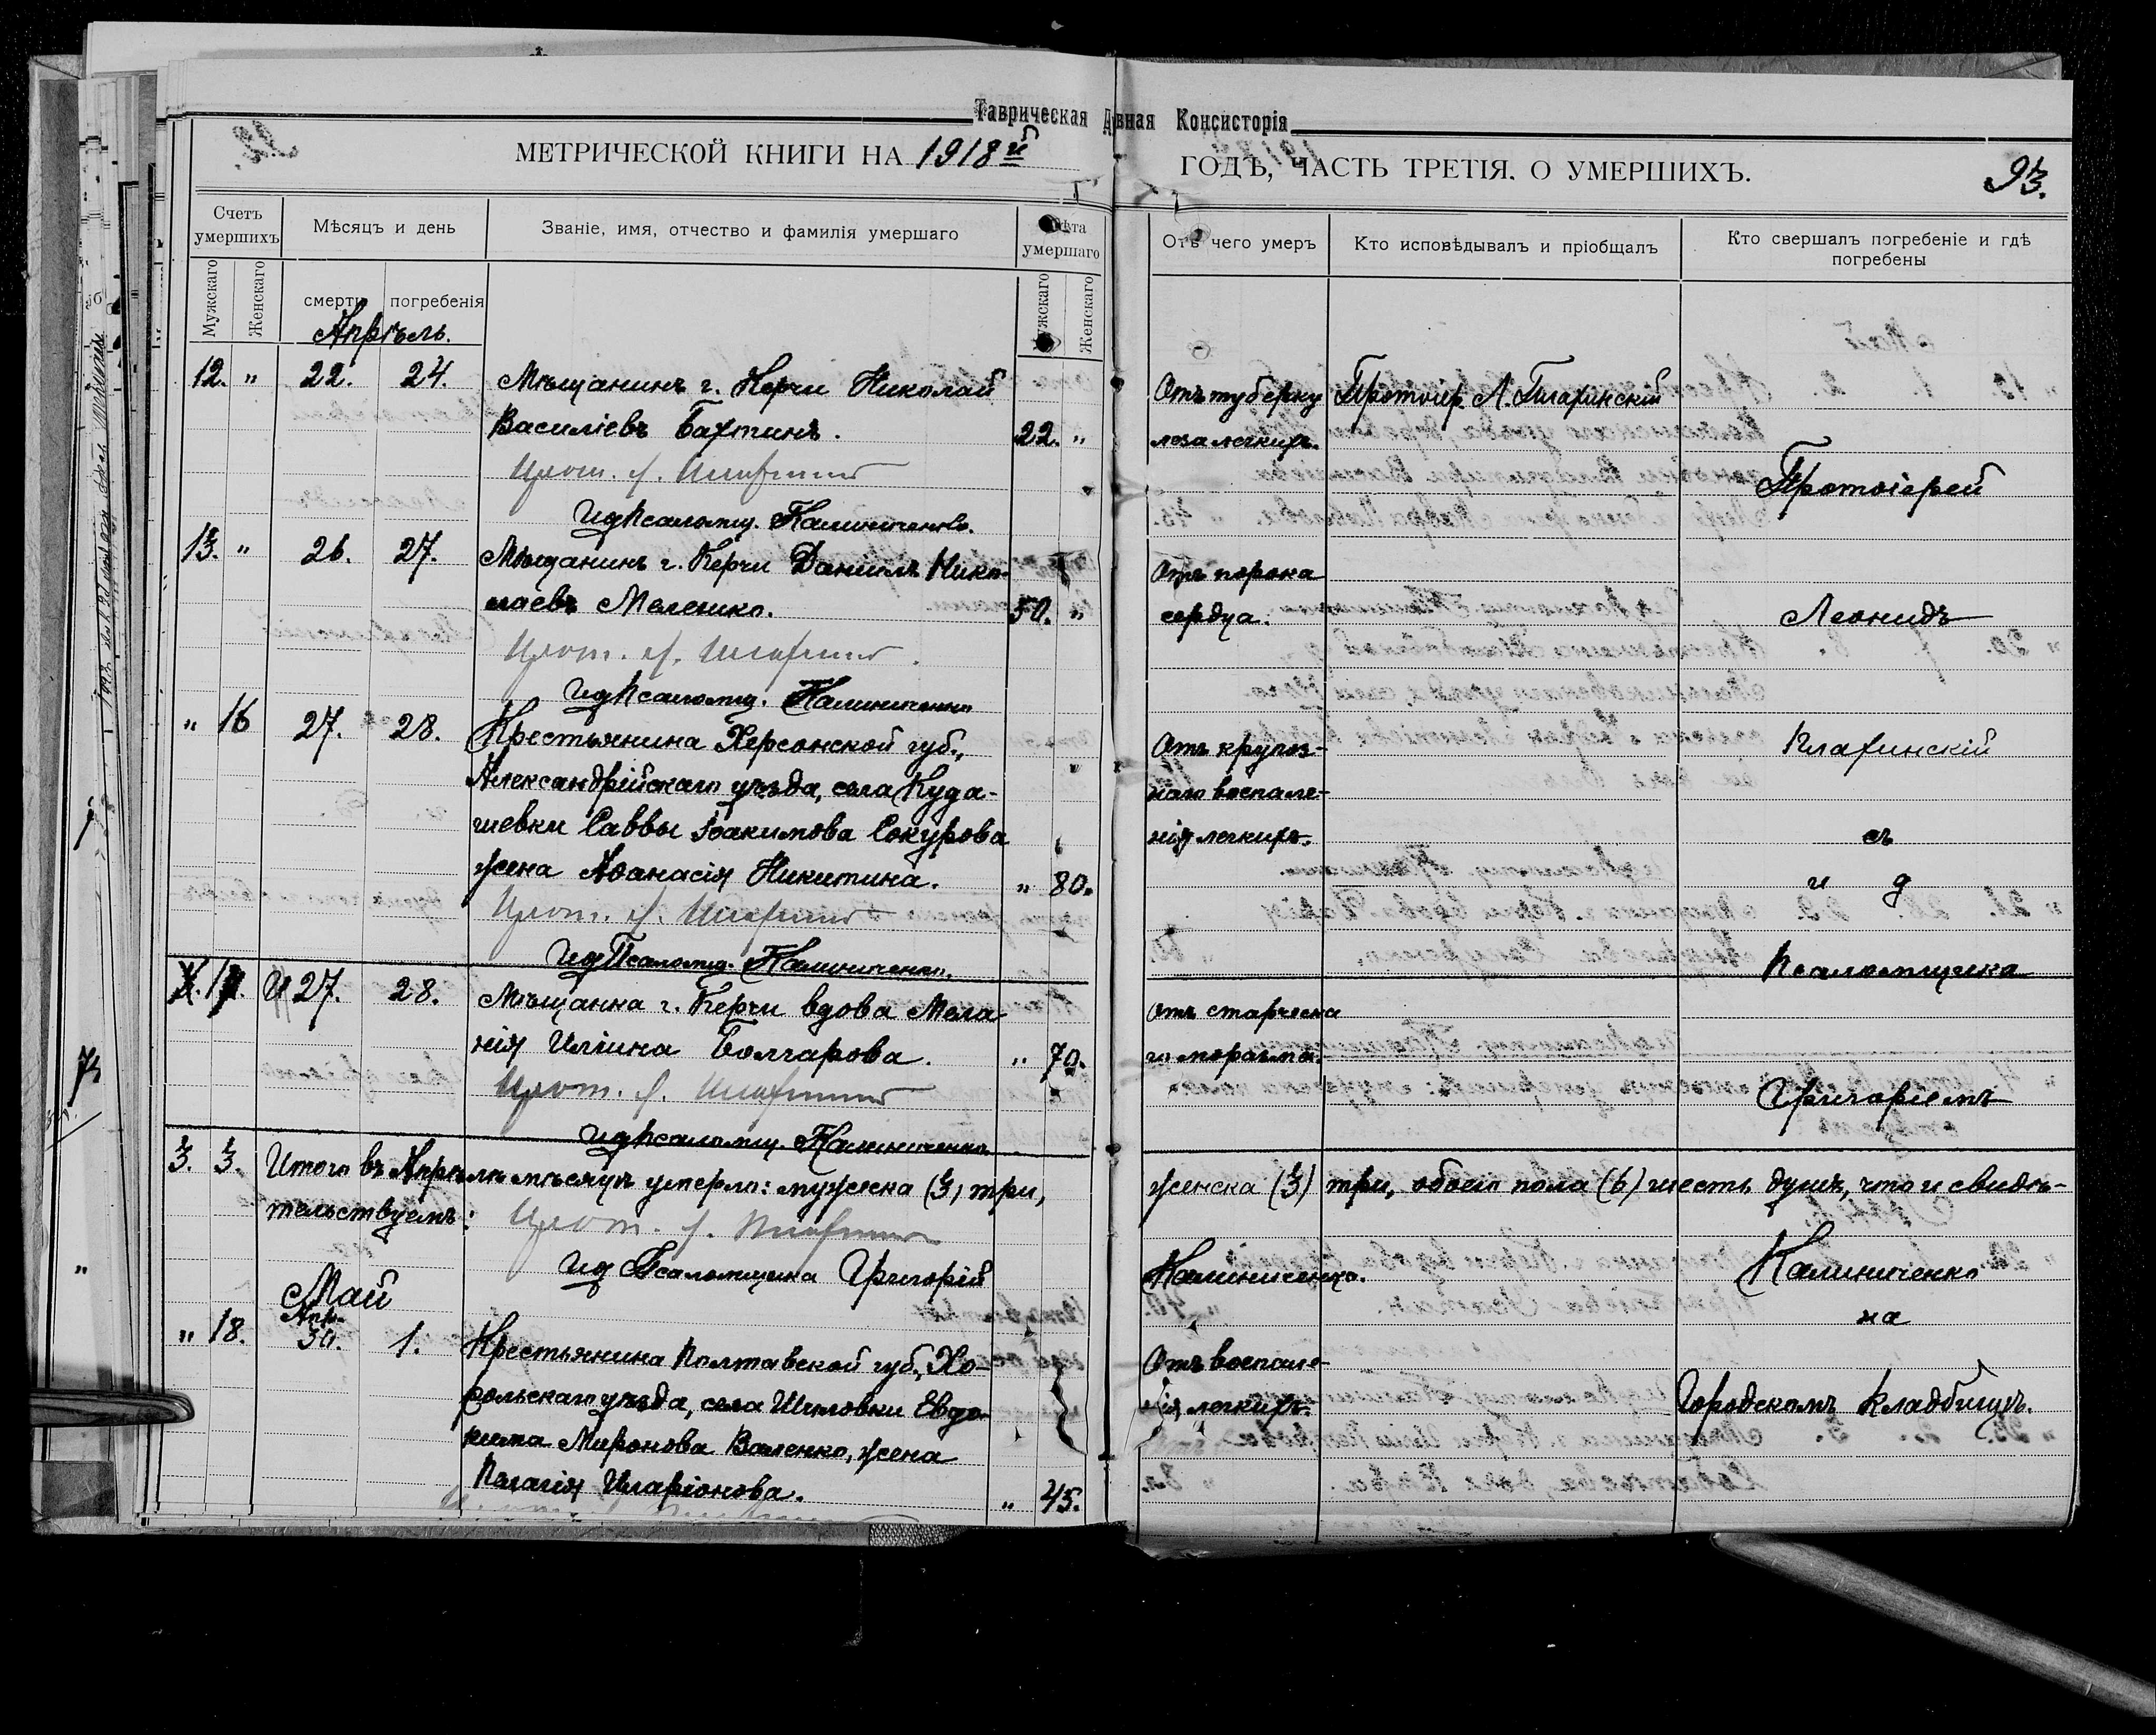 Таврическая Д вная Консисторія
МЕТРИЧЕСКОЙ КНИГИ НА 1918й ГОДЪ, ЧАСТЬ ТРЕТІЯ. О УМЕРШИХЪ.
93.
Счетъ умершихъ
Мужскаго
Женскаго
Мѣсяцъ и день
смерти
погребенія
Званіе, имя, отчество и фамилія умершаго
Лѣта умершаго
Мужскаго
Женскаго
Отъ чего умеръ
Кто исповѣдывалъ и пріобщалъ
Кто свершалъ погребеніе и гдѣ погребены
Апрѣль.
12. " 22. 24. Мѣщанинъ г. Керчи Николай
Василіевъ Бахтинъ. 22. "
Отъ туберку
леза легкихъ.
Протоіер. Л.
Прот. Л.
Ид Псаломщ. Калиниченко.
13. " 26. 27. Мѣщанинъ г. Керчи Даніилъ Нико-
лаевъ Мелешко. 50. "
Отъ порока
сердца.
Прот. Л.
Ид Псаломщ. Калиниченко
" 16 27. 28. Крестьянина Херсонской губ.,
Александрійскаго уѣзда, села Куда-
шевки Саввы Іоакимова Сокурова
жена Аѳанасія Никитина. " 80.
Отъ крупоз-
наго воспале-
нія легкихъ.
Прот. Л.
Ид Псаломщ. Калиниченко.
17. 27. 28. Мѣщанка г. Керчи вдова Мела
нія Иліина Болгарова. " 70.
Отъ старческа
го маразма.
Прот. Л.
Ид Псаломщ. Калиниченко
Протоіерей
Леонидъ
съ
и д
Псаломщика
Григоріемъ
Калиниченко
на
Городскомъ Кладбищѣ.
3. 3. Итого въ Апрѣлѣ мѣсяцѣ умерло: мужеска (3) три, женска (3) три, обоего пола (6) шесть душъ, что и свидѣ-
тельствуемъ: Прот. Л.
Ид Псаломщика Григорій Калиниченко.
Май
Апр.
" 18. 30. 1. Крестьянина Полтавской губ., Хо-
рольскаго уѣзда, села Шиловки Евдо-
кима Миронова Валенко, жена
Пелагія Иларіонова. " 45.
Отъ воспале-
нія легкихъ.